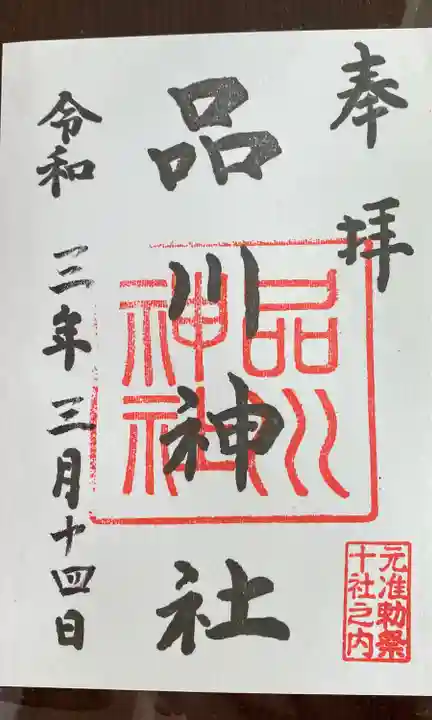 奉拝
元准勅祭
十社之内
品川神社
品川
神社
令和三年三月十四日